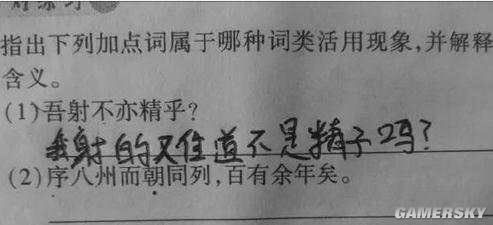 对练习
指出下列加点词属于哪种词类活用现象,并解释
含义。
(1)吾射不亦精乎?
我射的又住道不是精子吗?
(2)序八州而朝同列,百有余年矣。
GAMERSKY